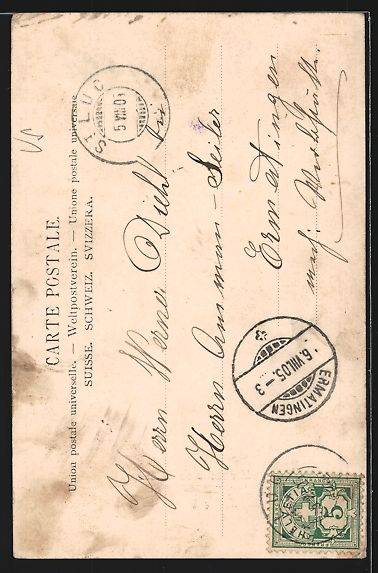 CARTE POSTALE.
Union postale universelle. — Weltpostverein. — Unione postale universale
SUISSE. SCHWEIZ. SVIZZERA.
SILUC
5 VIII 05
Herrn Werner Diehl
Herrn Ausman-Seiler
Ermatingen
ERMATINGEN
6.VIII.05.-3
HELVETIA
5
FRANCO